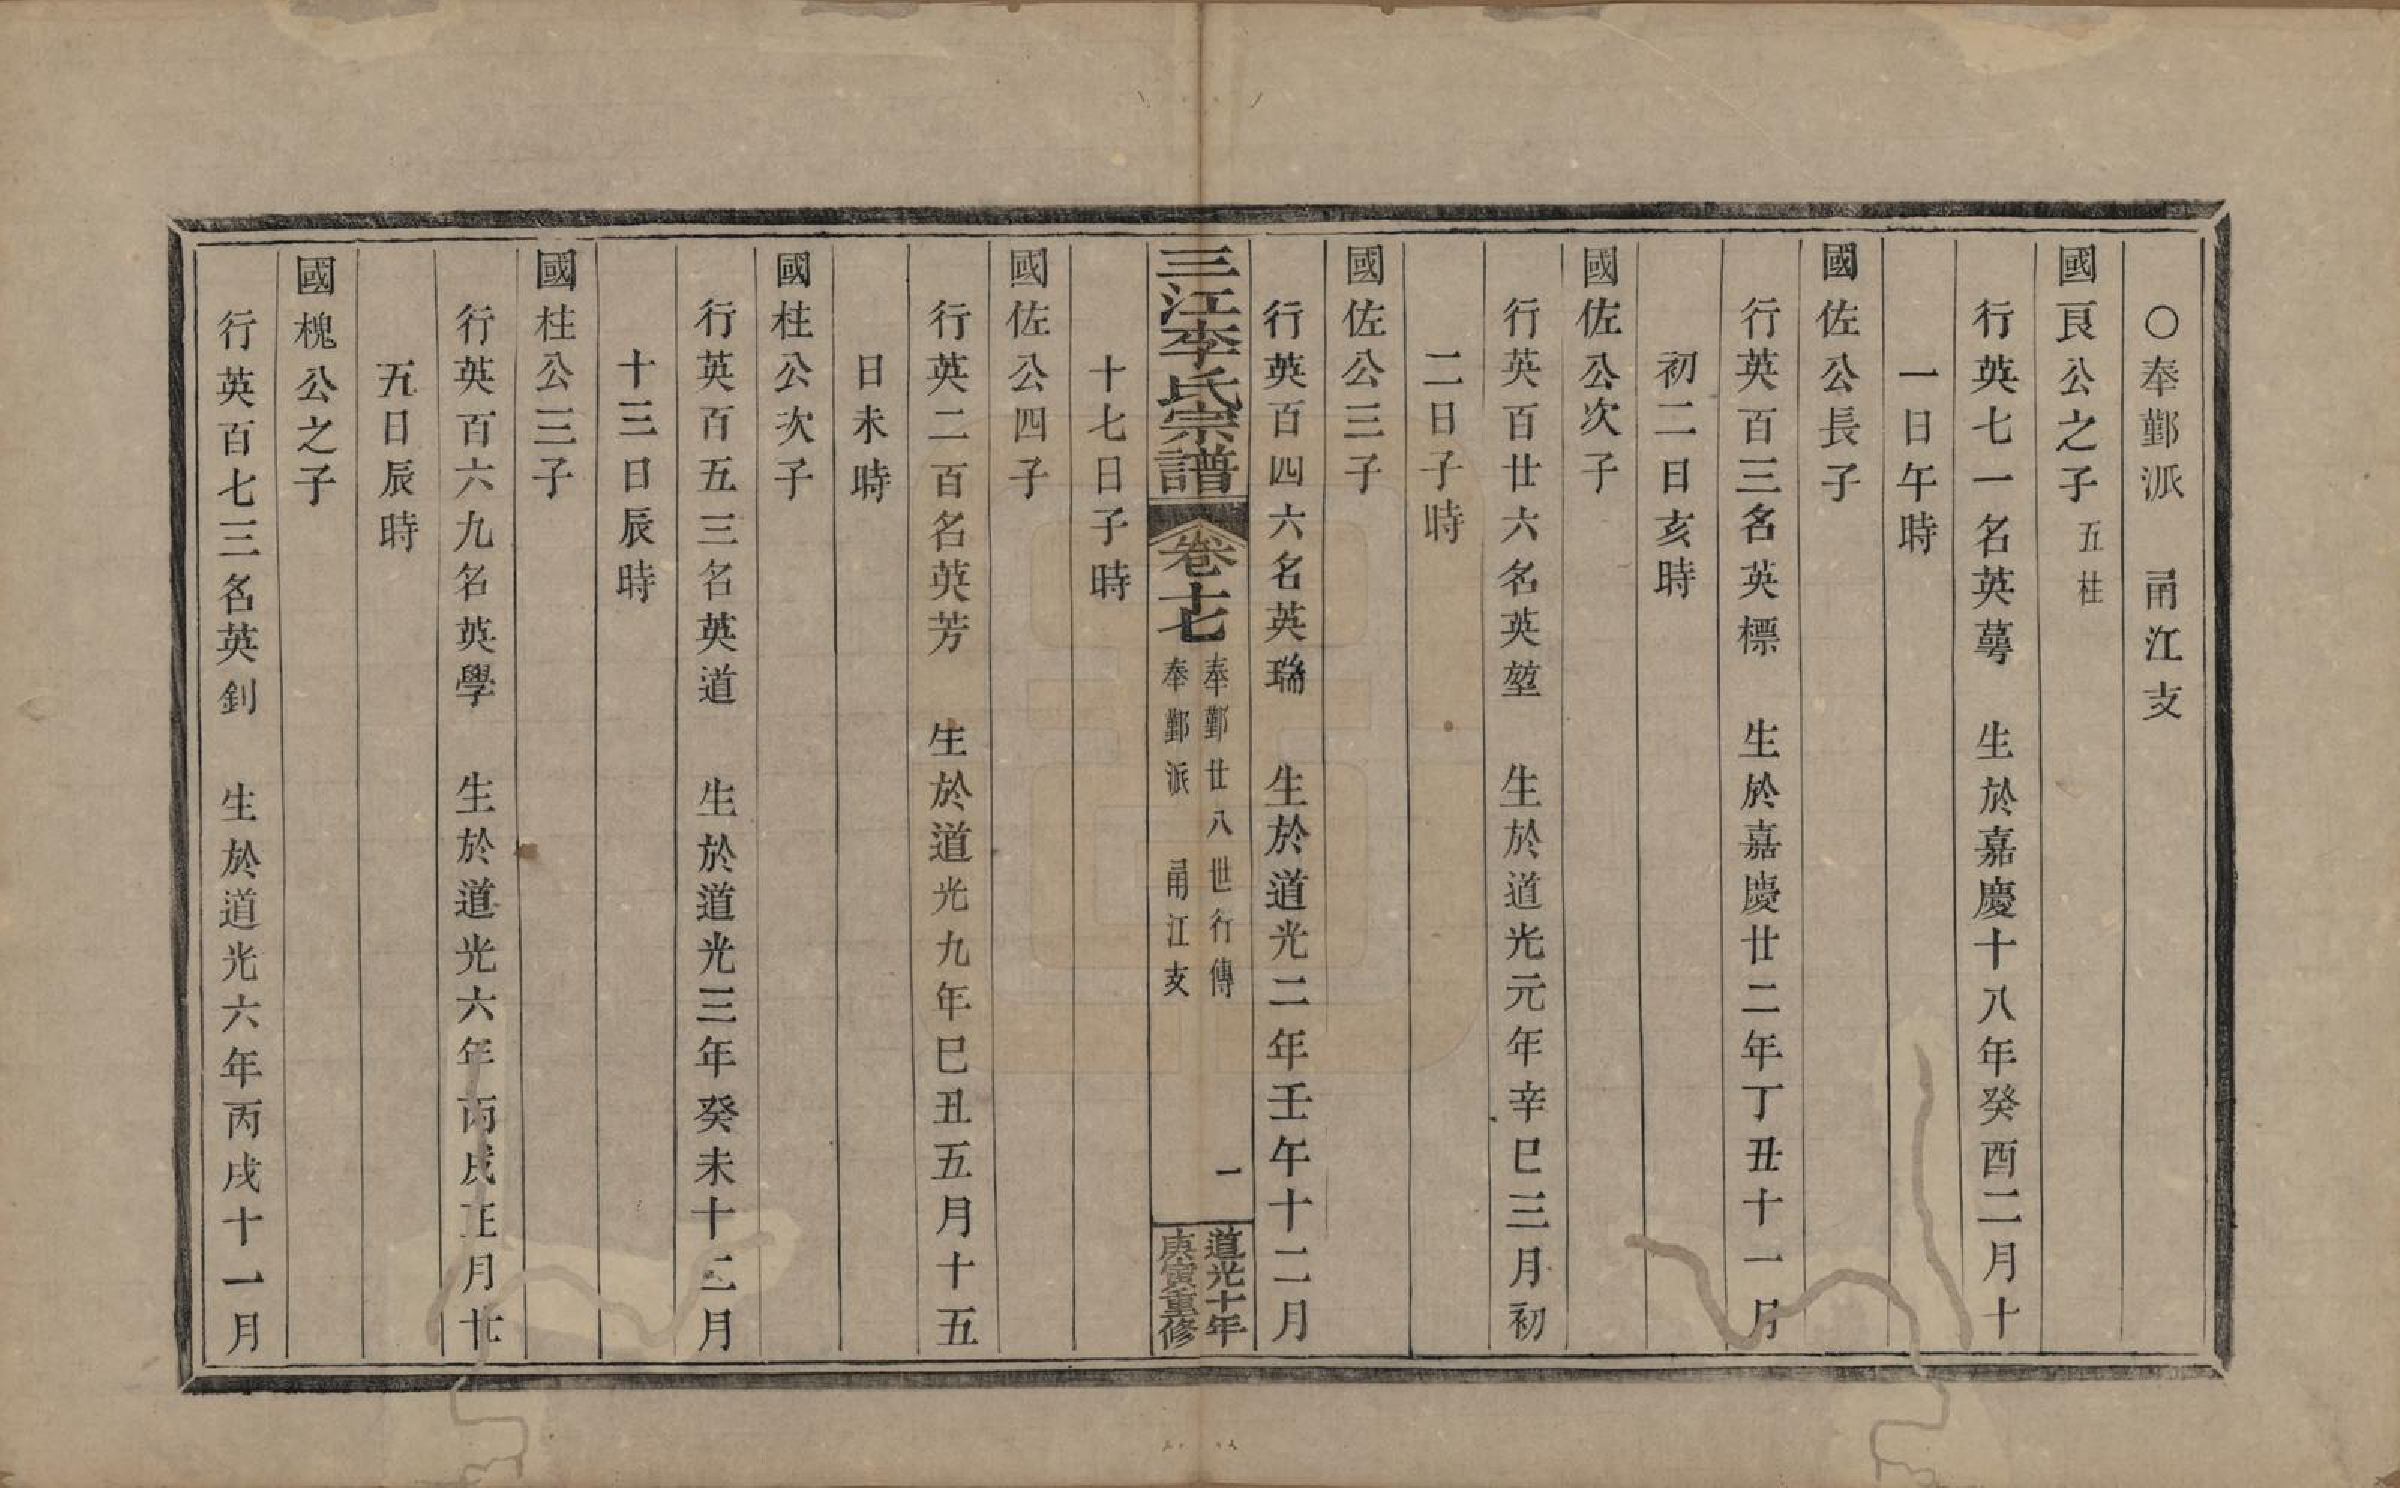 〇奉鄞派　甬江支
國良公之子五柱
行英七一名英蕚　生於嘉慶十八年癸酉二月十
一日午時
國佐公長子
行英百三名英標　生於嘉慶廿二年丁丑十一月
初二日亥時
國佐公次子
行英百廿六名英堃　生於道光元年辛巳三月初
二日子時
國佐公三子
行英百四六名英瑞　生於道光二年壬午十二月
三江李氏宗譜
卷十七
奉鄞廿八世行傳
奉鄞派　甬江支
一
道光十年
庚寅重修
十七日子時
國佐公四子
行英二百名英芳　生於道光九年巳丑五月十五
日未時
國柱公次子
行英百五三名英道　生於道光三年癸未十二月
十三日辰時
國柱公三子
行英百六九名英學　生於道光六年丙戌正月廿
五日辰時
國槐公之子
行英百七三名英釗　生於道光六年丙戌十一月